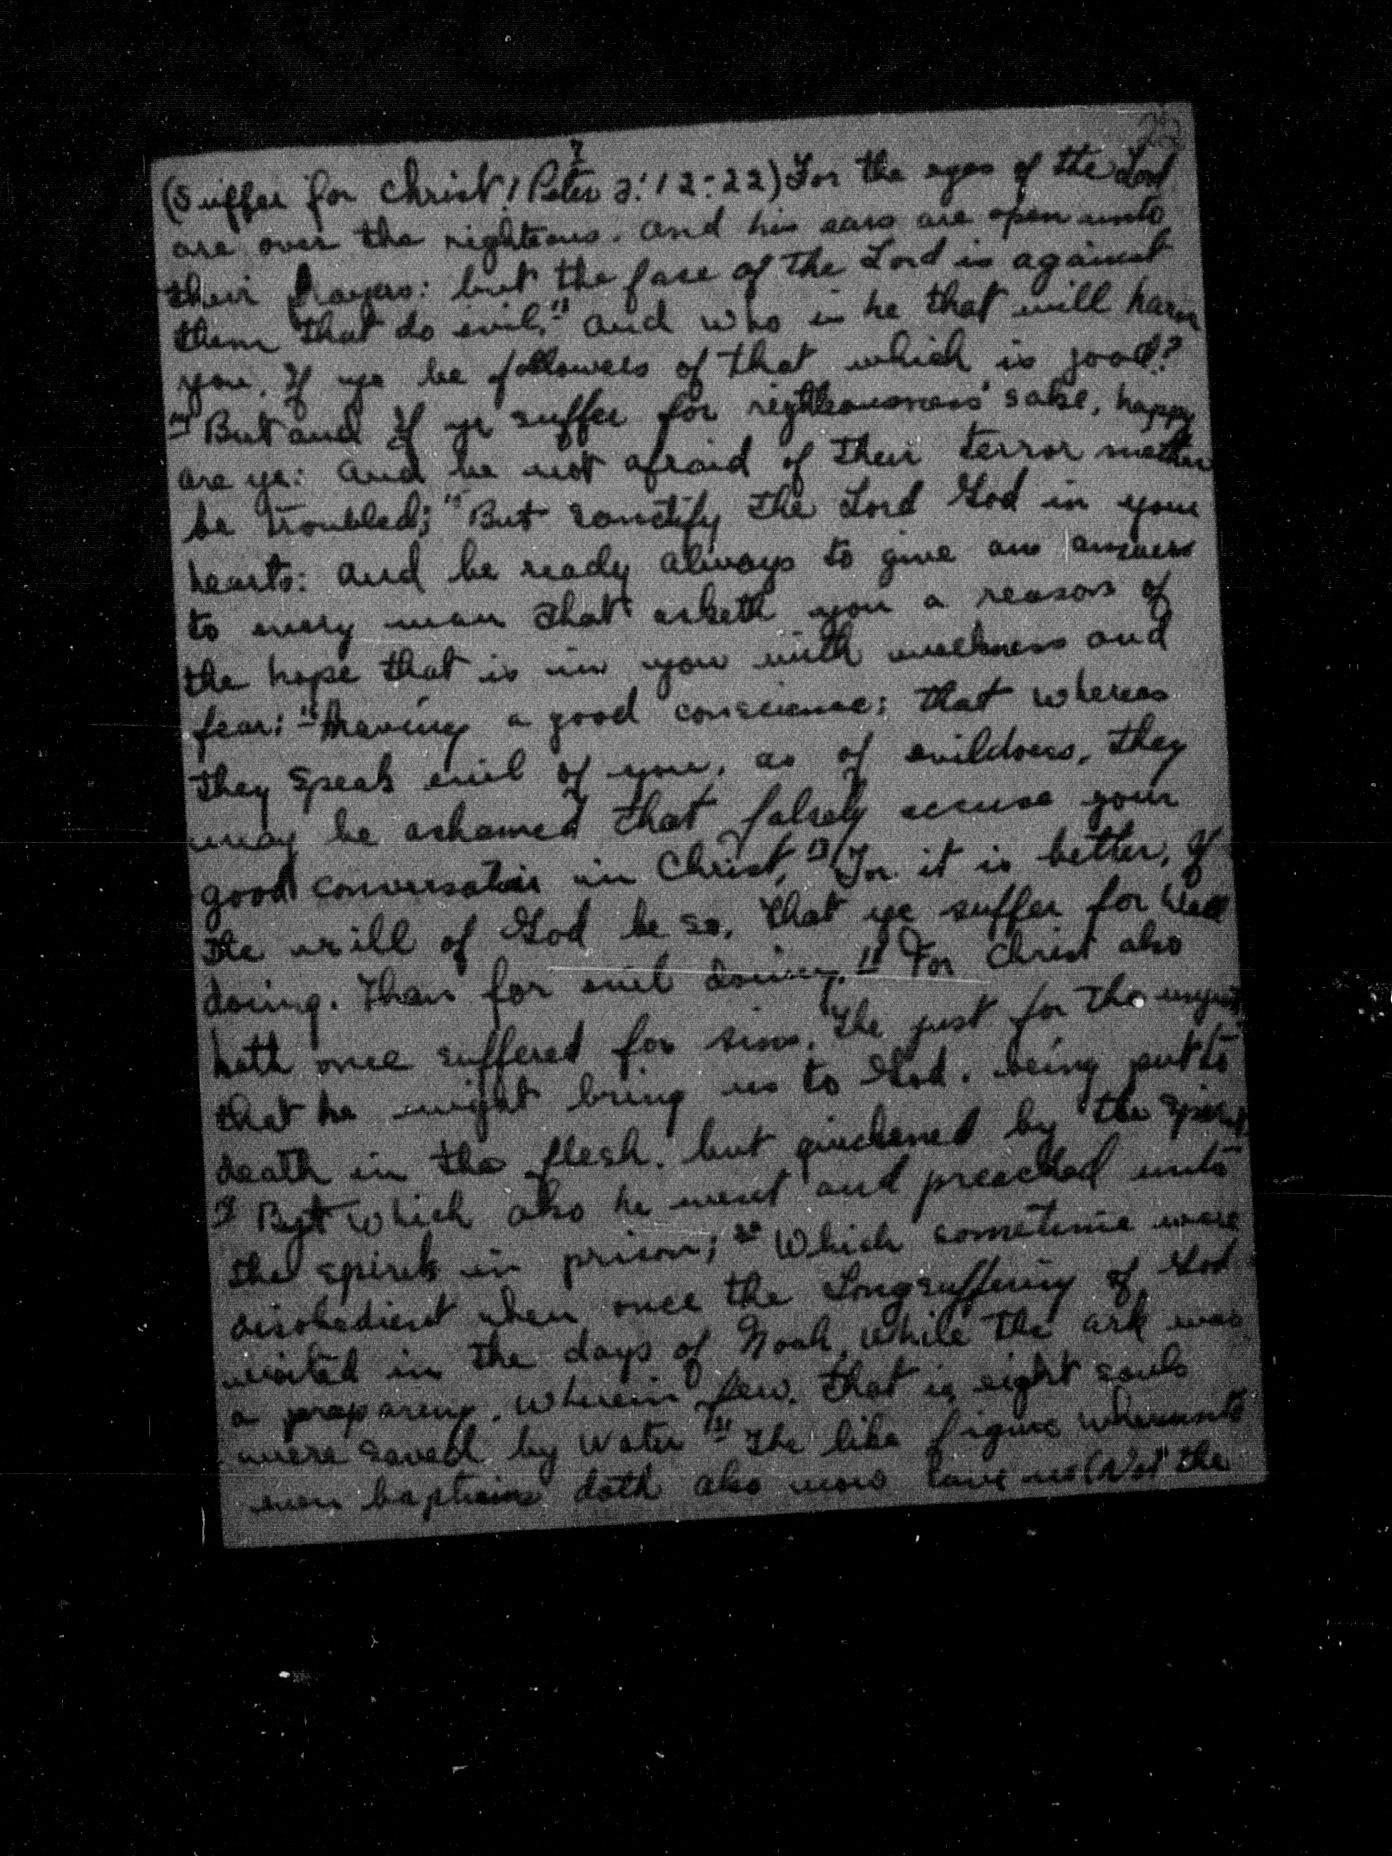 22
7
(Suffer for Christ 1 Peter 3:12-22) For the eyes of the Lord
are over the righteous. and his ears are open unto
their prayers: but the face of the Lord is against
them that do evil. 13 and who is he that will harm
you, If ye be followers of that which is good?
14 But and If ye suffer for righteousness sake, happy
are ye: and be not afraid of their terror neither
be troubled; 15 But sanctify the Lord God in your
hearts: and be ready always to give an answer
to every man that asketh you a reason of
the hope that is in you with meekness and
fear: 16 Having a good conscience; that whereas
they speak evil of you, as of evildoers, they
may be ashamed that falsely accuse your
good conversation in Christ, 17 For it is better, if
the will of God be so, that ye suffer for well
doing. Than for evil doing. 18 For Christ also
hath once suffered for sins. The just for the unjust
that he might bring us to God. being put to
death in the flesh. but quickened by the Spirit
19 By which also he went and preached unto
the spirits in prison; 20 Which sometime were
disobedient when once the Longsuffering of God
waited in the days of Noah, while the ark was
a preparing. wherein few. that is, eight souls
were saved by water 21 The like figure whereunto
even baptism doth also now save us (Not the